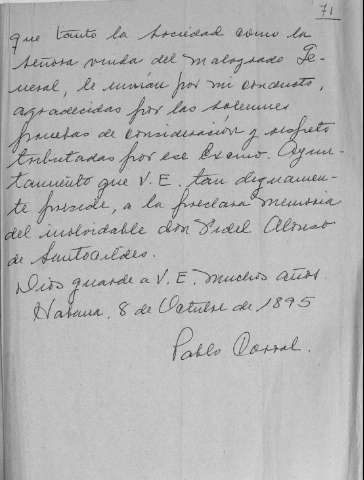 71
que tanto la sociedad como la
señora viuda del malogrado Ge-
neral, le envían por mi conducto,
agradecidas por las solemnes
pruebas de consideración y respeto
tributadas por ese Excmo. Ayun-
tamiento que V. E. tan dignamen-
te preside, a la preclara memoria
del inolvidable don Fidel Alonso
de Santocildes.
Dios guarde a V. E. muchos años.
Habana, 8 de Octubre de 1895
Pablo Corral.